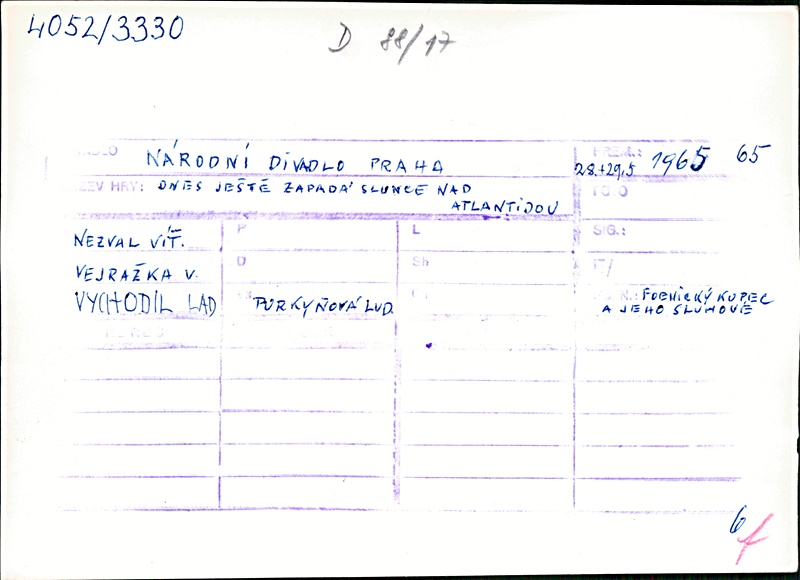 4052/3330
D 88/17
NÁRODNÍ DIVADLO PRAHA
PREM.: 28.+29.5 1965 65
ZEV HRY: DNES JEŠTĚ ZAPADÁ SLUNCE NAD
ATLANTIDOU
FOTO
NEZVAL VÍT.
P
L
SIG.:
VEJRAŽKA V.
O
Sh
VYCHODIL LAD
PURKYŇOVÁ LUD.
FOENICKÝ KUPEC
A JEHO SLUHOVÉ
6